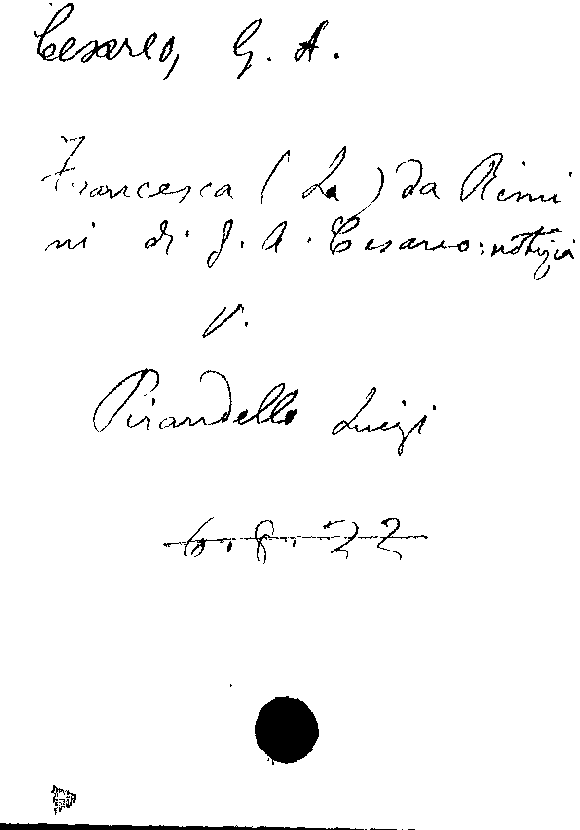 Cesareo, G. A.
Francesca (La) da Rimi
ni di G. A. Cesareo: notizia
V.
Pirandello Luigi
6. 8. 22